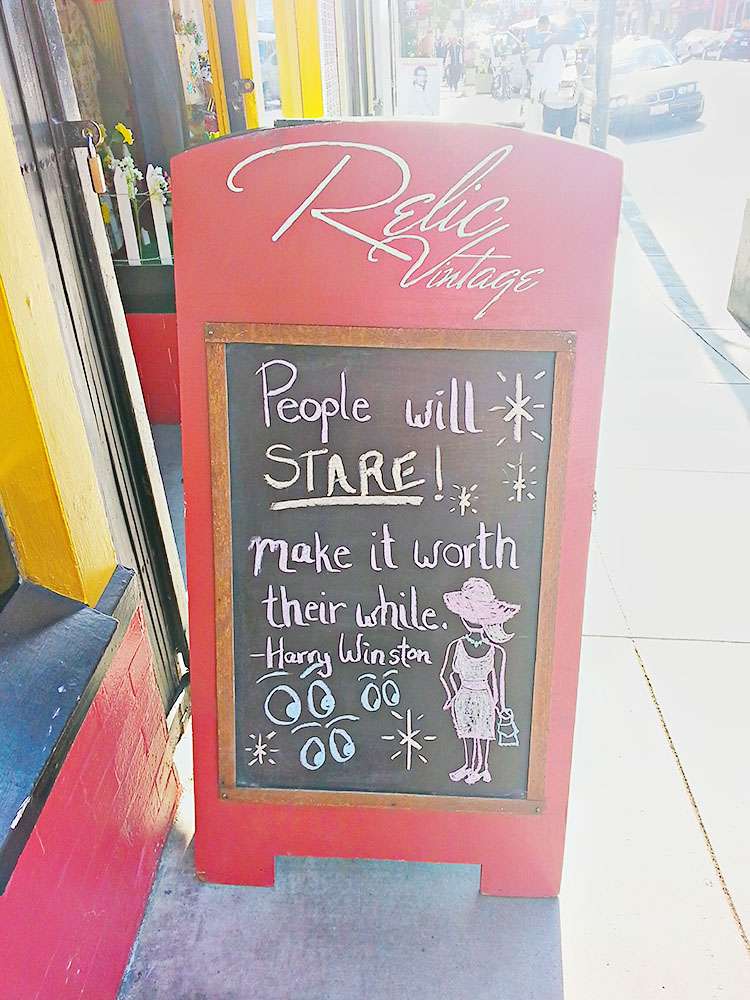 Relic
Vintage
People will
STARE!
make it worth
their while.
-Harry Winston